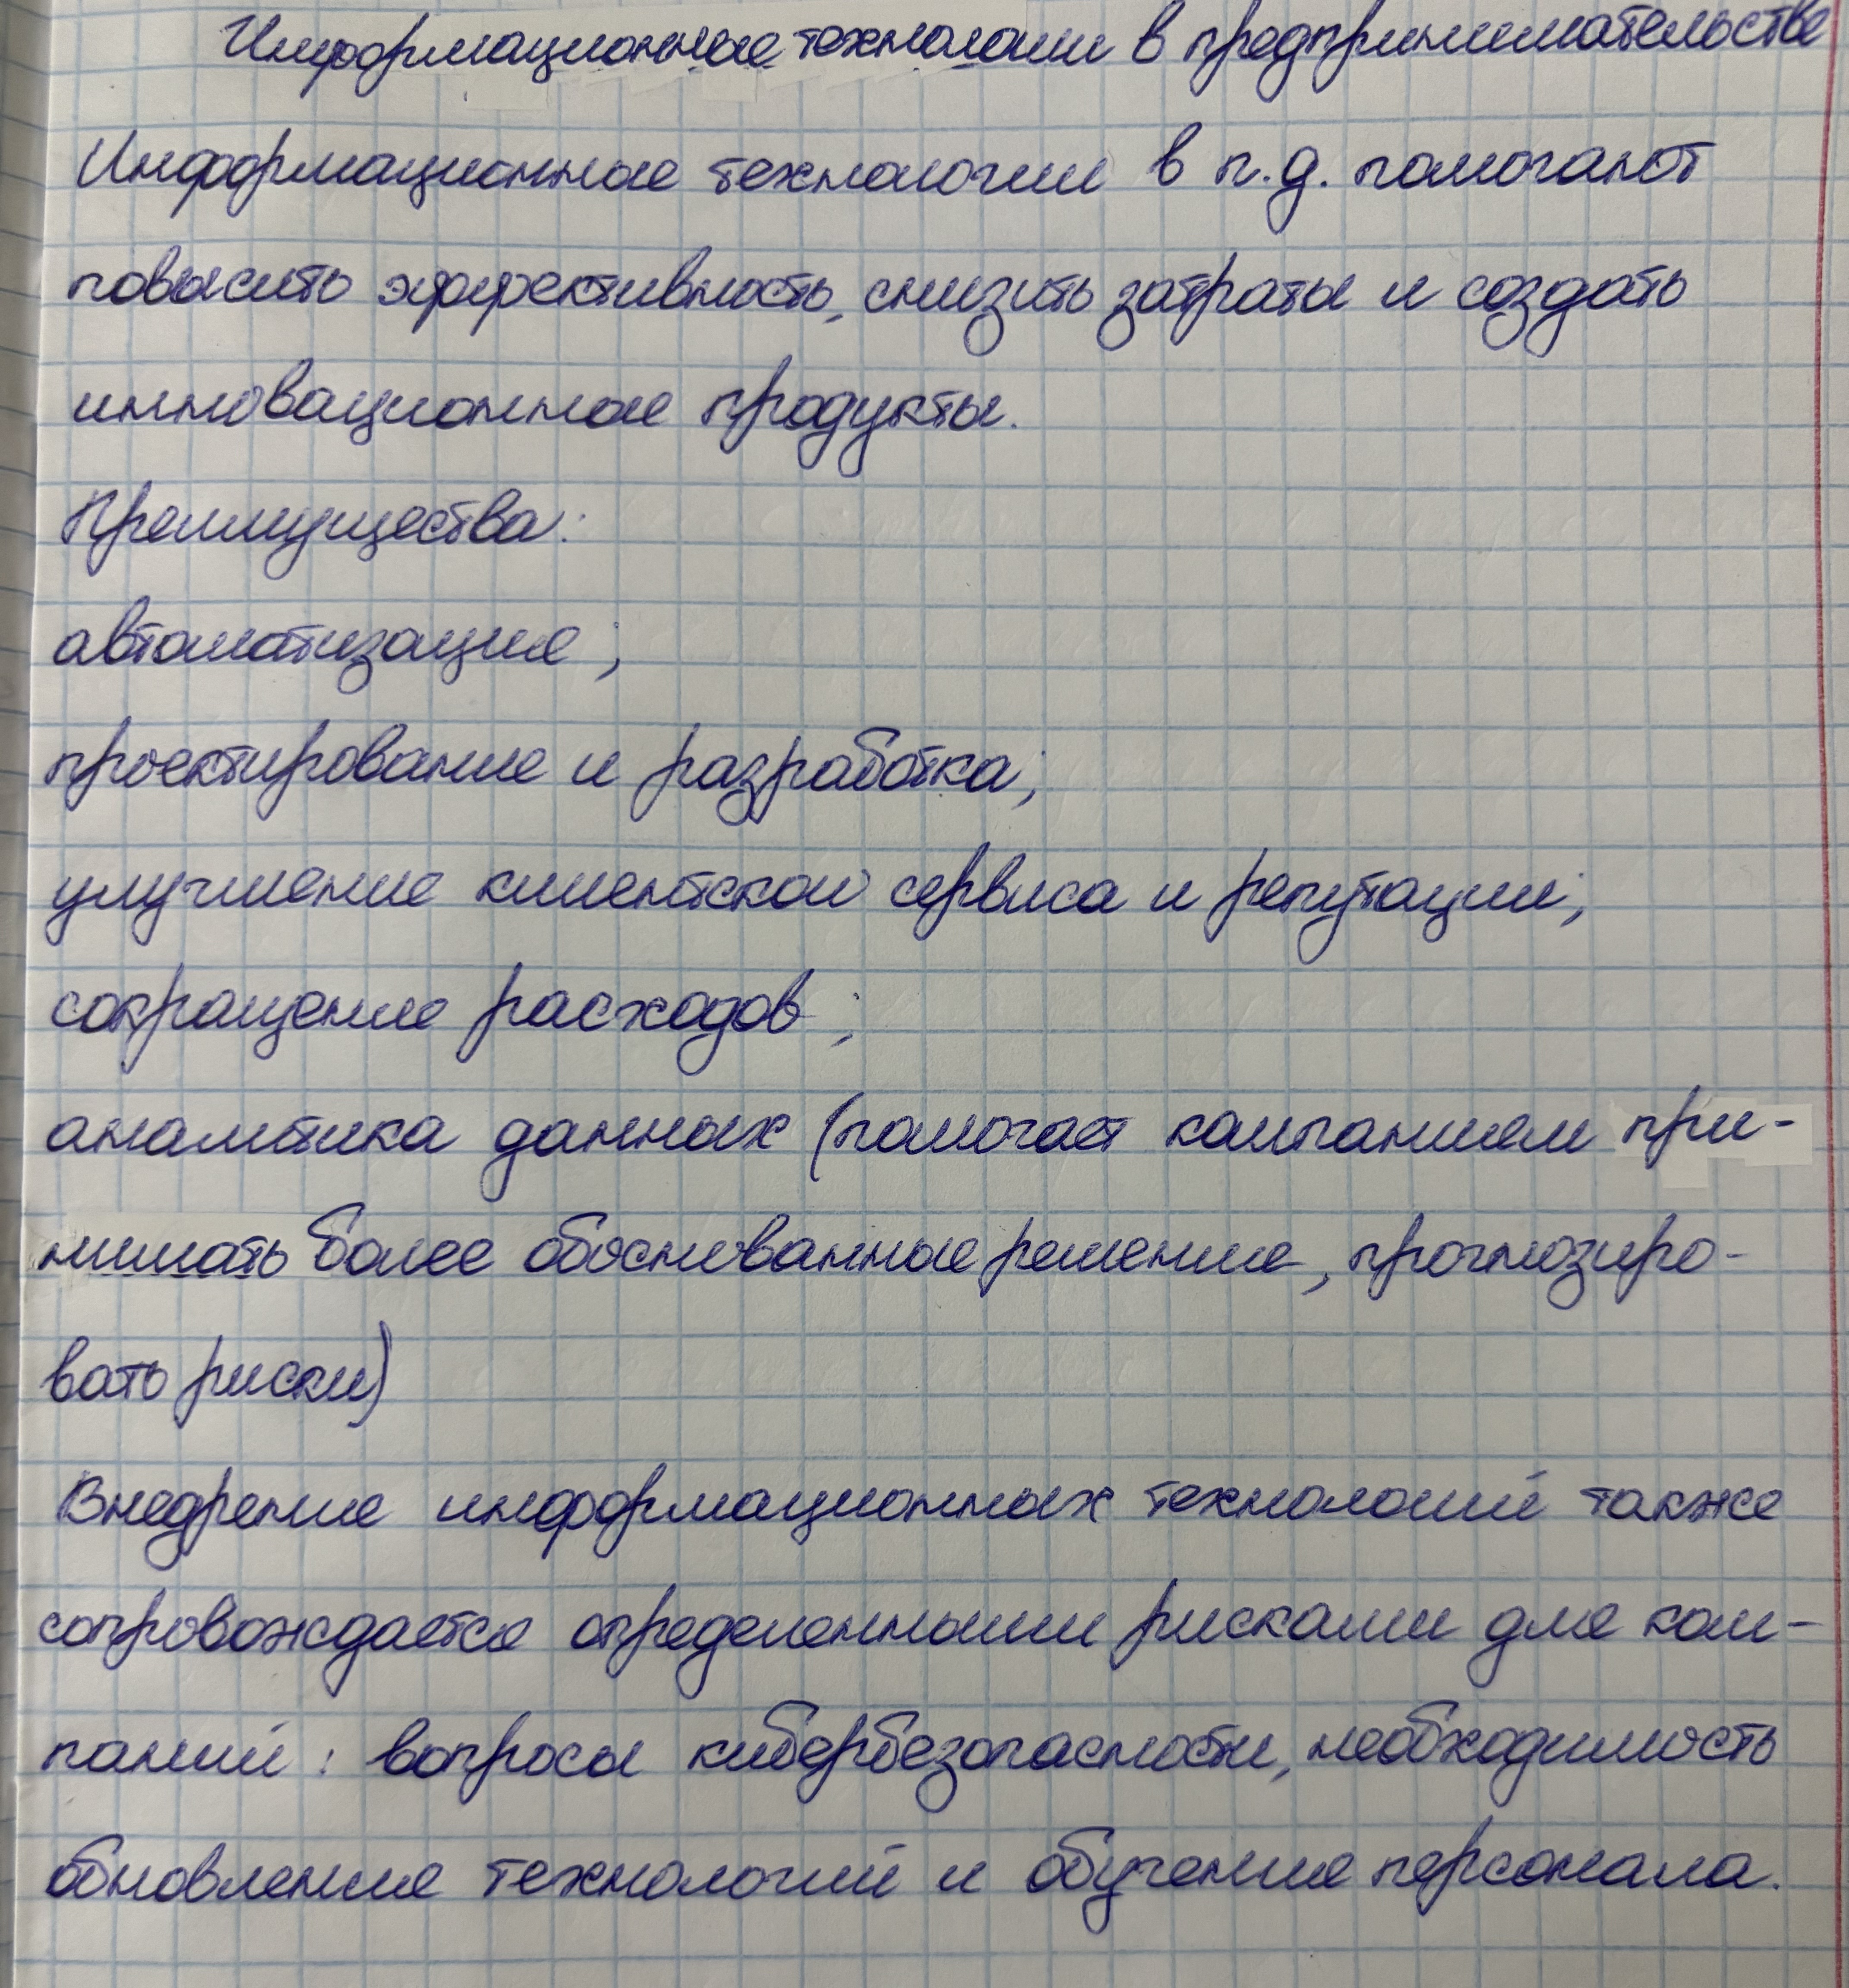 Информационные технологии в предпринимательстве
Информационные технологии в п.д. помогают
повысить эффективность, снизить затраты и создать
инновационные продукты.
Преимущества:
автоматизация;
проектирование и разработка;
улучшение клиентской сервиса и репутации;
сокращение расходов;
аналитика данных (помогает компаниям при-
нимать более обоснованные решения, прогнозиро-
вать риски)
Внедрение информационных технологий также
сопровождается определенными рисками для ком-
паний: вопросы кибербезопасности, необходимость
обновления технологий и обучения персонала.